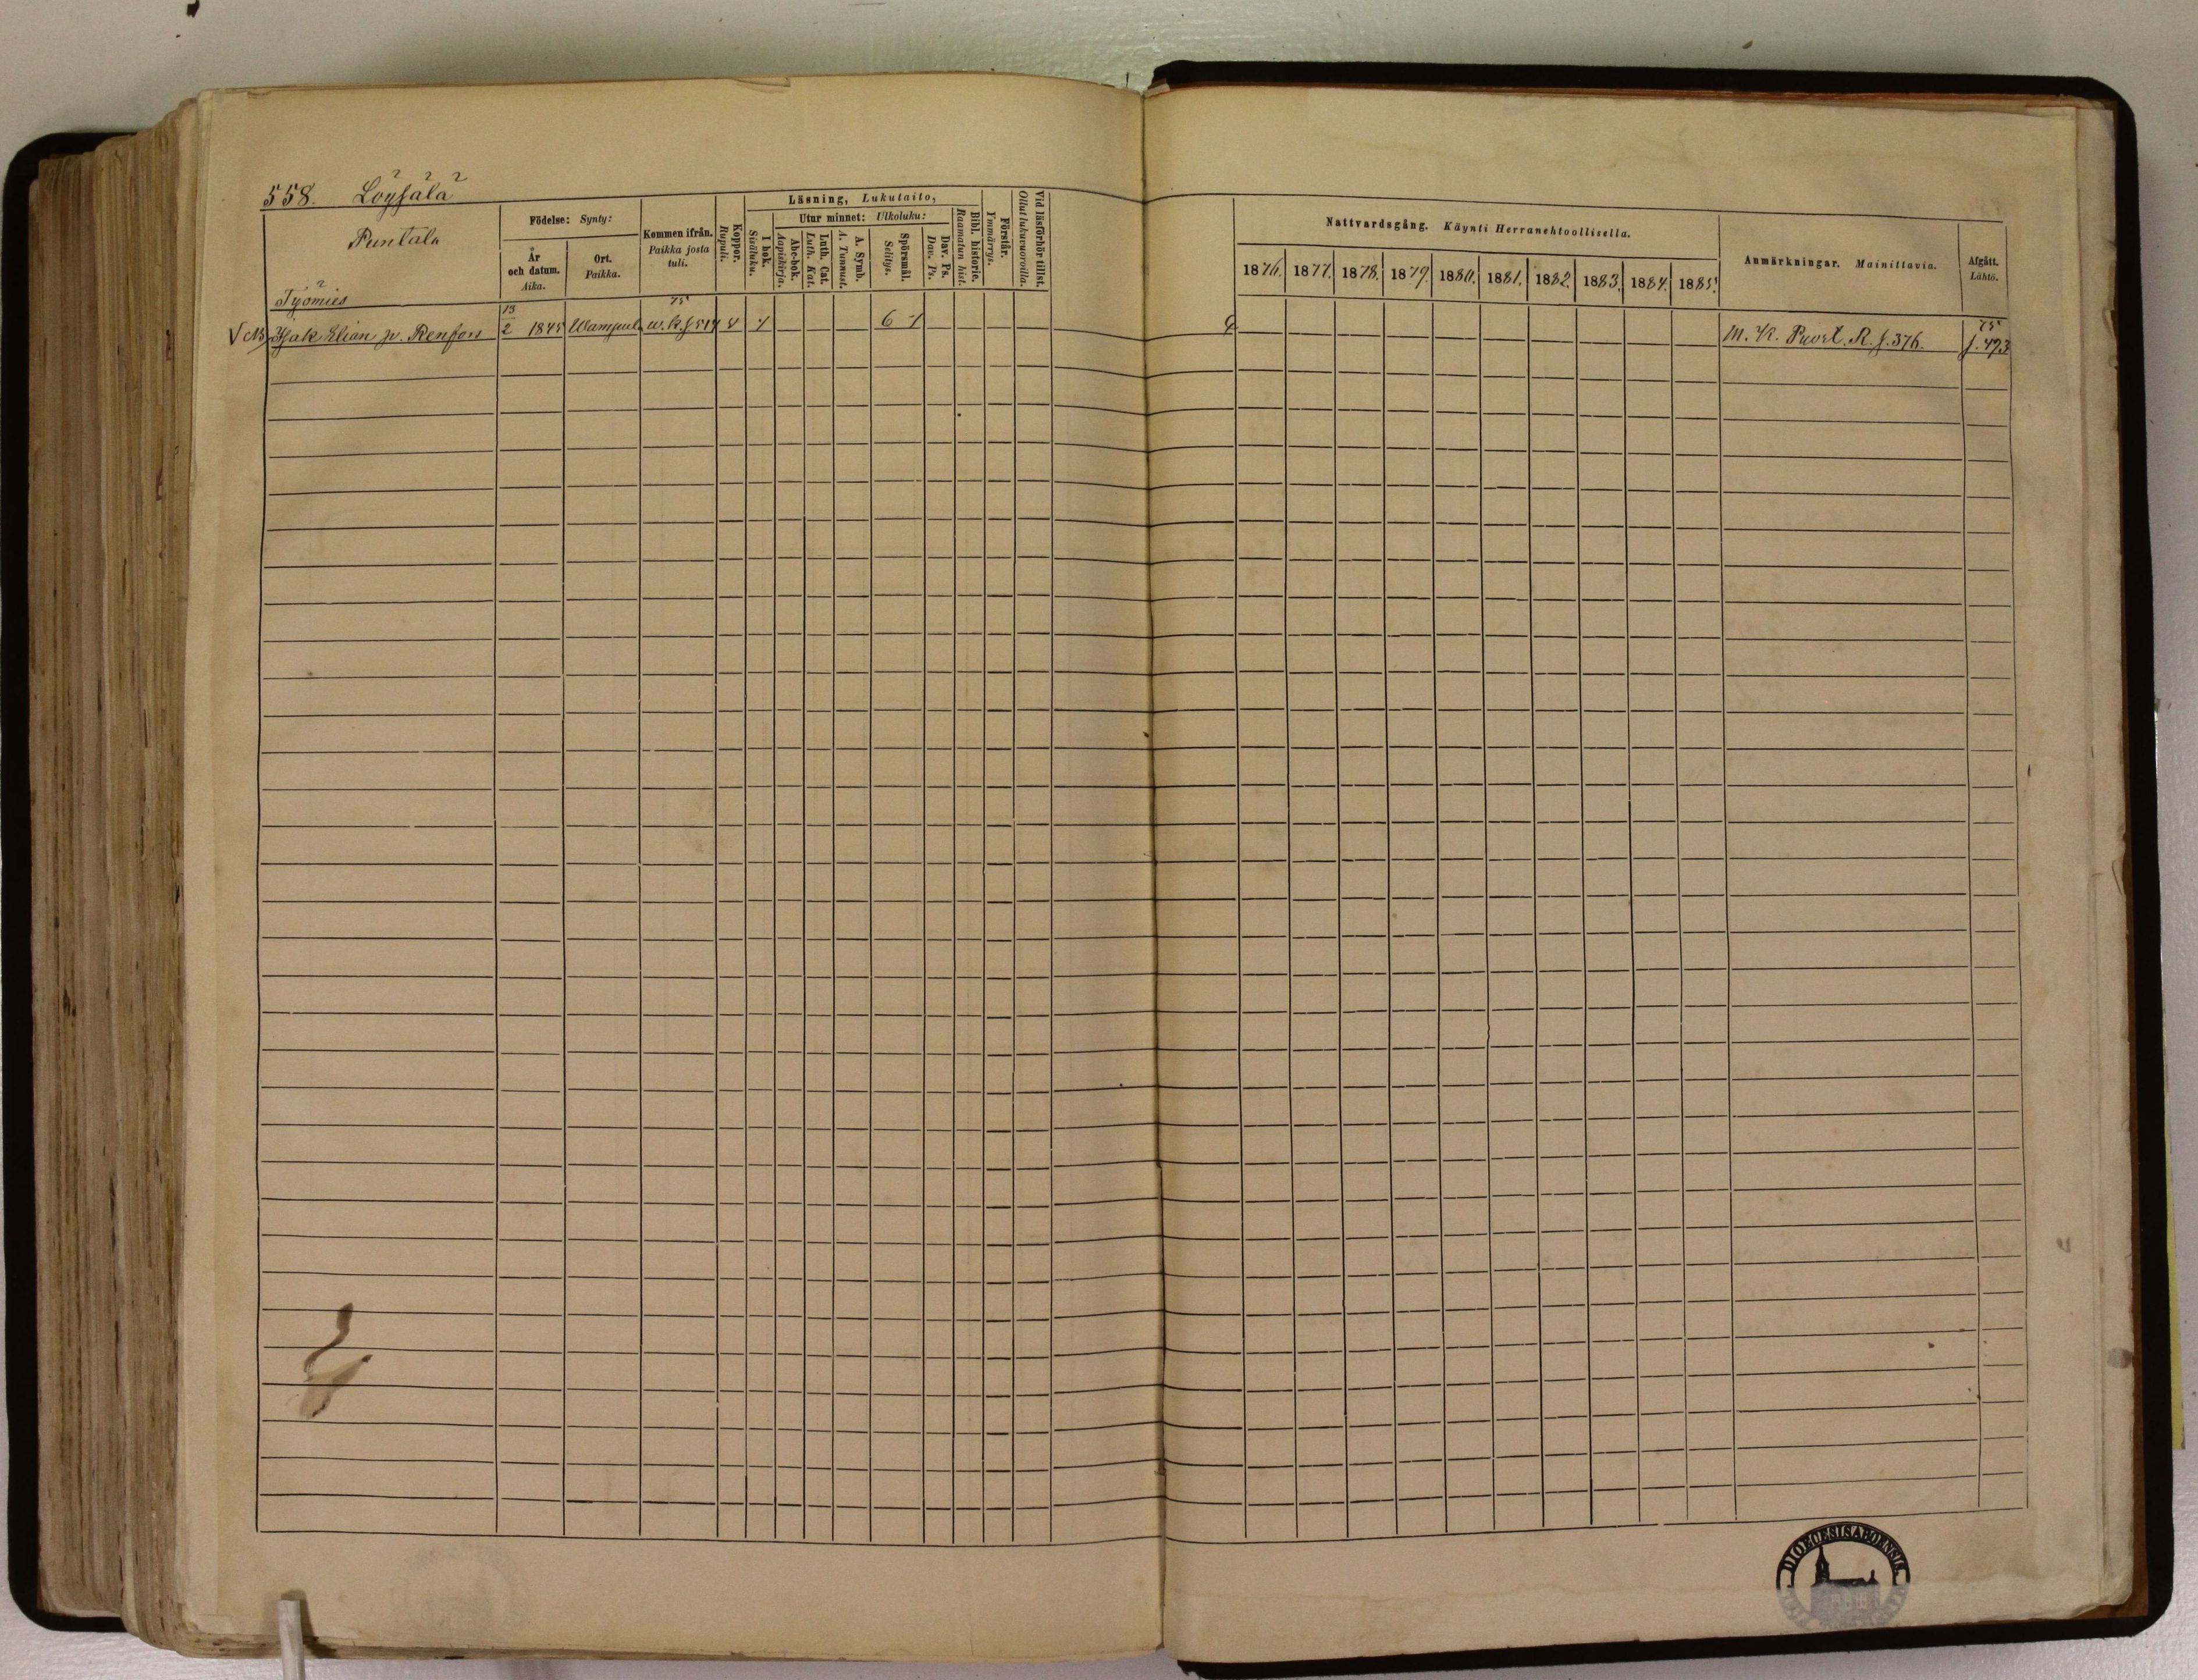 558. Löysälä
Puntala
Födelse: Synty:
År
och datum.
Aika.
Ort.
Paikka.
Kommen ifrån.
Paikka josta
tuli.
Koppor.
Rupuli.
Läsning, Lukutaito,
I bok.
Sisäluku.
Utur minnet: Ulkoluku:
Abc-bok.
Aapiskirja.
Luth. Cat.
Luth. Kat.
A. Symb.
A. Tunnust.
Spörsmål.
Selitys.
Dav. Ps.
Dav. Ps.
Bibl. historie.
Raamatun hist.
Förstår.
Ymmärrys.
Vid läsförhör tillst.
Ollut lukuvuoroilla.
Nattvardsgång. Käynti Herranehtoollisella.
1876. 1877. 1878. 1879. 1880. 1881. 1882. 1883. 1884. 1885.
Anmärkningar. Mainittavia.
Afgått.
Lähtö.
Työmies
Isak Elian p. Renfors 13/2 1845 75 6 M. K. R. s. 376. 75 s. 493
DIOECESIS ABOENSIS